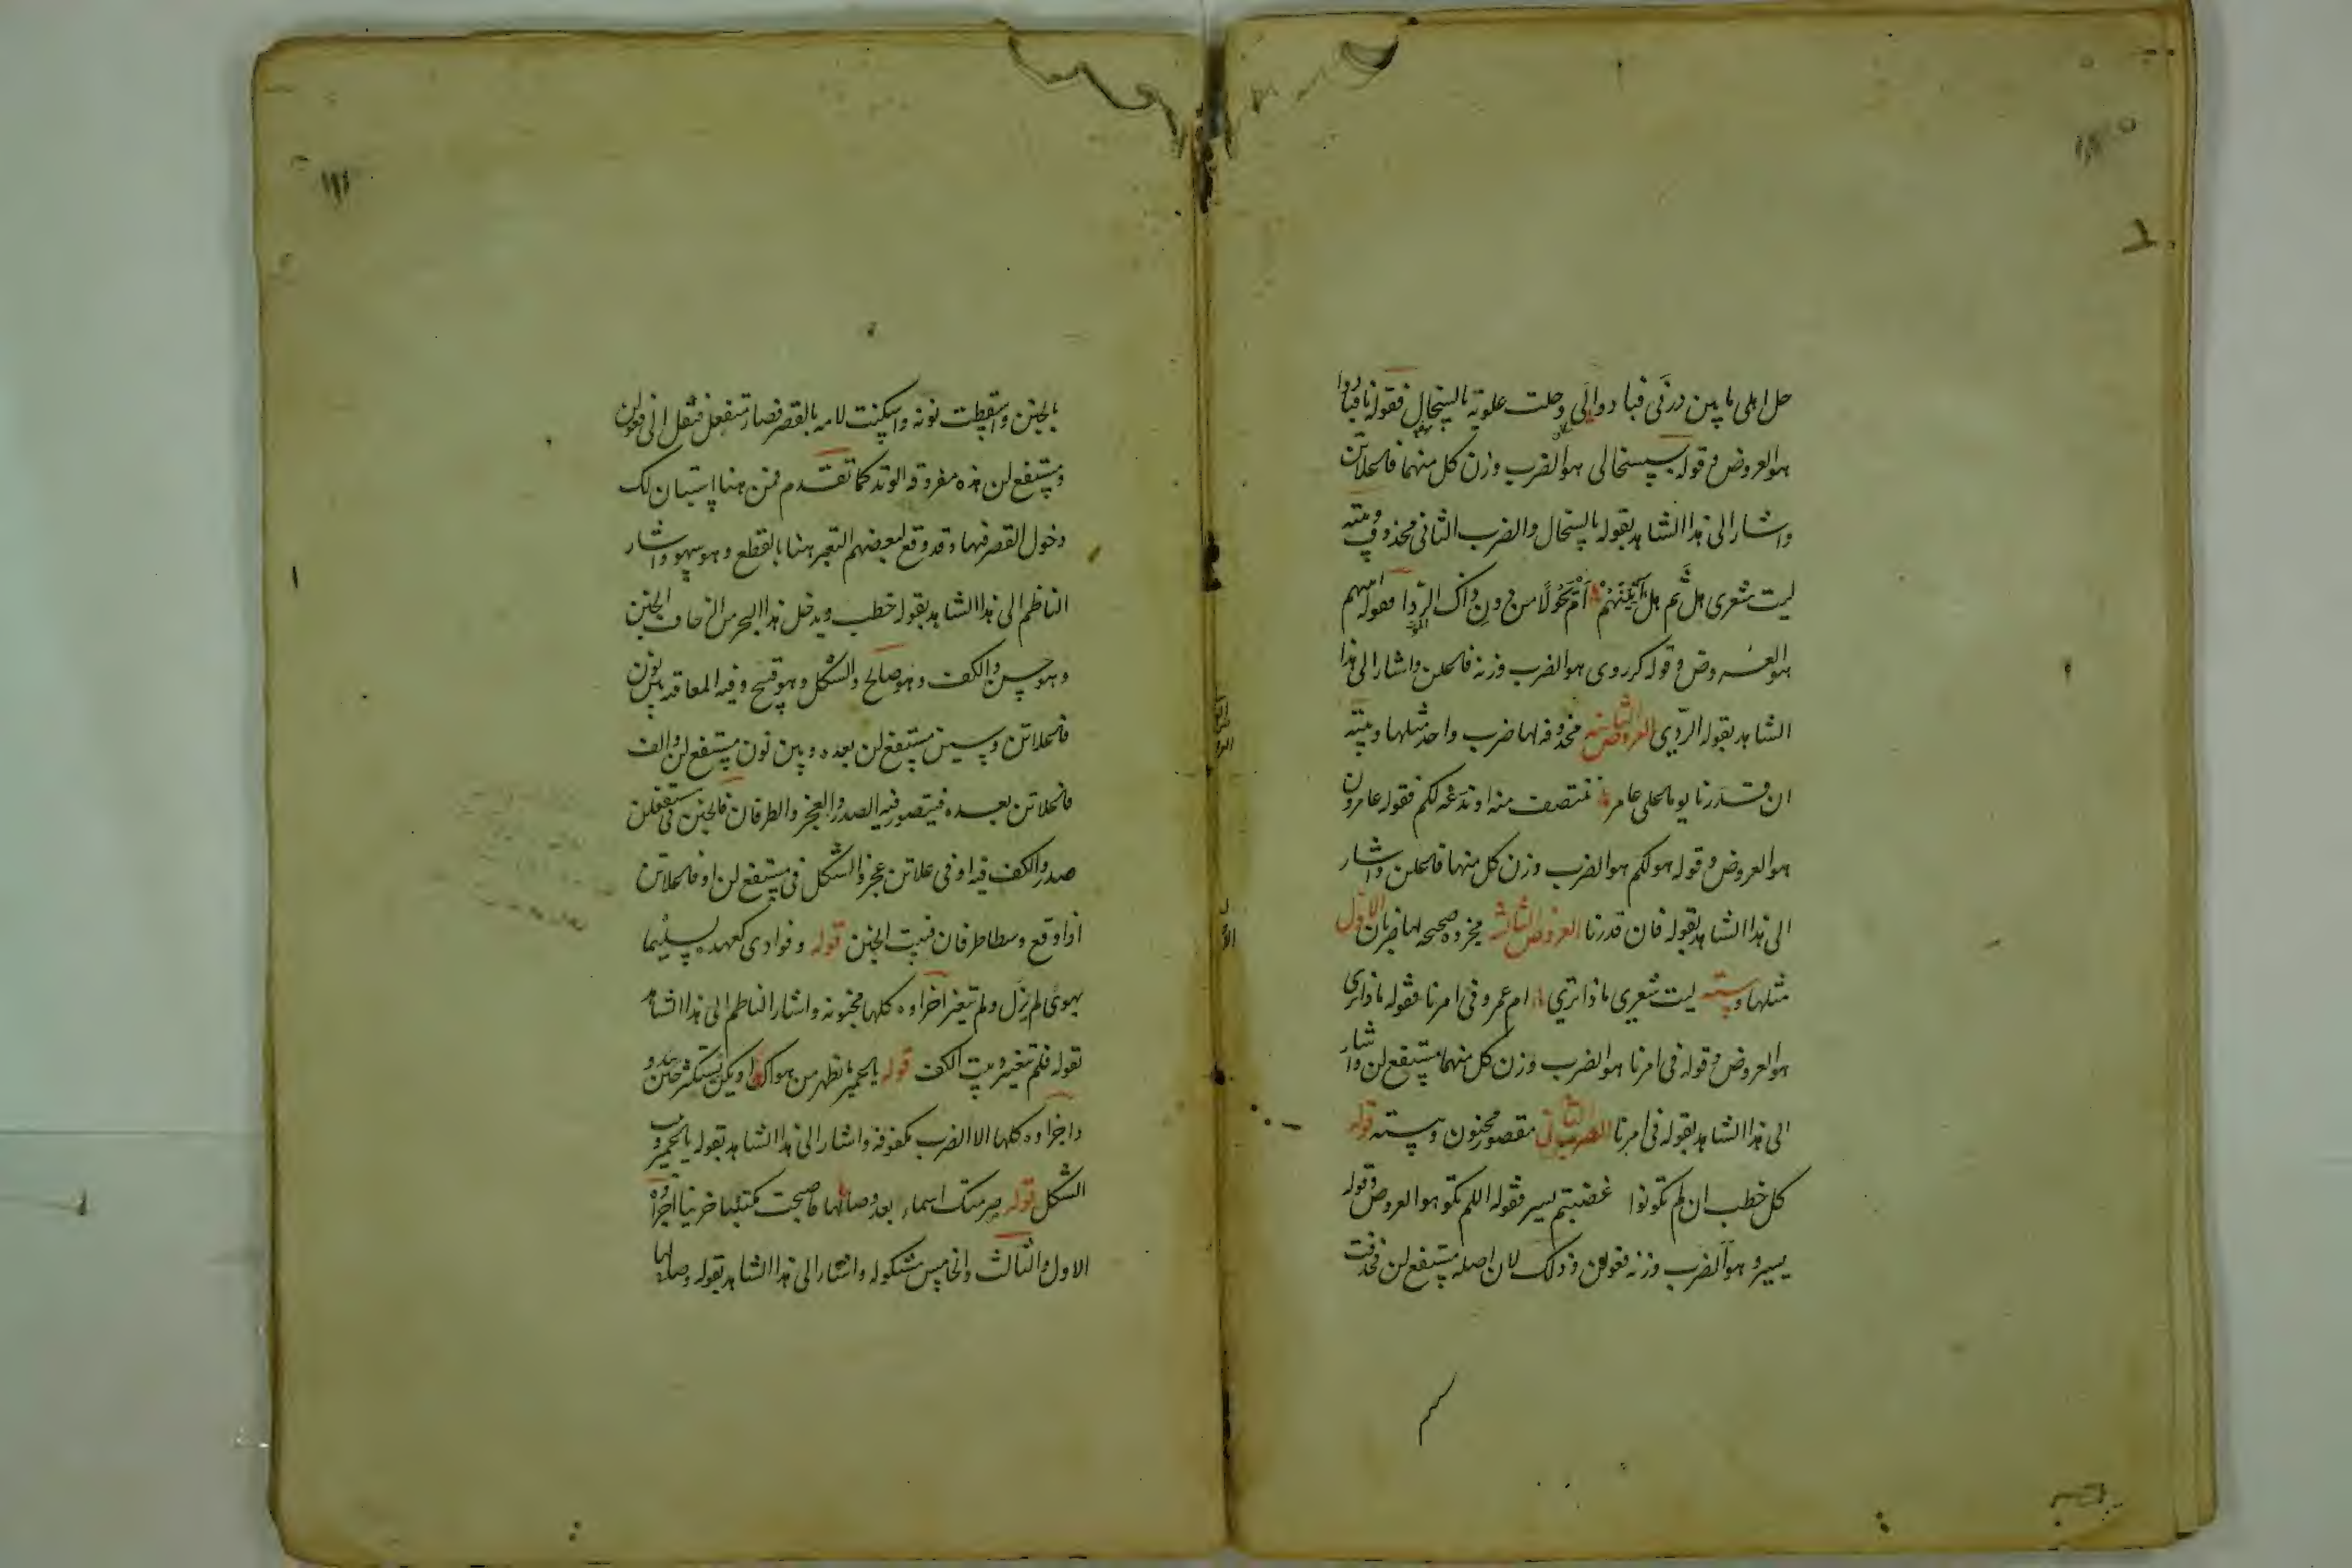 حل اهلى ما بين درنى فبادوالى وحلت علوية بالسخال فقوله نا فبادوا
هو العروض وقوله بسسخالى هو الضرب وزن كل منهما فاعلاتن
واشار الى هذا الشاهد بقوله بالسخال والضرب الثانى محذوف وبيته
ليت شعرى هل ثم هل آتينهم ام يحولا من دون ذاك الردا فقوله اتيهم
هو العروض وقوله كرردى هو الضرب وزنه فاعلن واشار الى هذا
الشاهد بقوله الردى العروض الثانية محذوفة لها ضرب واحد مثلها وبيته
ان قدرنا يوما على عامر ننتصف منه او ندعه لكم فقوله عامرون
هو العروض وقوله هو لكم هو الضرب وزن كل منهما فاعلن واشار
الى هذا الشاهد بقوله فان قدرنا العروض الثالثة مجزوة صحيحة لها ضربان الاول
مثلها وبيته ليت شعرى ماذا ترى ام عمرو فى امرنا فقوله ماذا ترى
هو العروض وقوله فى امرنا هو الضرب وزن كل منهما مستفع لن واشار
الى هذا الشاهد بقوله فى امرنا الضرب الثانى مقصور مخبون وبيته قوله
كل خطب ان لم تكونوا غضبتم يسير فقوله اللم تكو هو العروض وقوله
يسير وهو الضرب وزنه فعولن وذلك لان اصله مستفع لن فحذفت
بالخبن واسقطت نونه واسكنت لامه بالقصر فصار متفعل فنقل الى فعولن
ومستفع لن هذه مفروقة الوتد كما تقدم فمن هنا استبان لك
دخول القصر فيها وقد وقع لبعضهم التعبير هنا بالقطع وهو سهو واشار
الناظم الى هذا الشاهد بقوله خطب ويدخل هذا البحر من الزحاف الخبن
وهو حسن والكف وهو صالح والشكل وهو قبيح وفيه المعاقبة بين نون
فاعلاتن وسين مستفع لن بعده وبين نون مستفع لن والف
فاعلاتن بعده فيتصور فيه الصدر والعجز والطرفان فالخبن فى مستفعلن
صدر والكف فيه او فى علاتن عجز والشكل فى مستفع لن او فاعلاتن
اذا وقع وسطا طرفان فبيت الخبن قوله وفوادى كعهده بسليما
بهوى لم يزل ولم يتغير اجزاوه كلها مخبونة واشار الناظم الى هذا الشاهد
بقوله فلم يتغير وبيت الكف قوله يا عمير ما تظهر من هواك او يكن يستكثر حين يبدو
واجزاوه كلها الا الضرب مكفوفة واشار الى هذا الشاهد بقوله يا عمير وبيت
الشكل قوله صرمتك اسماء بعد وصالها فاصبحت مكتئبا حزينا اجزاوه
الاول والثالث والخامس مشكولة واشار الى هذا الشاهد بقوله وصالها